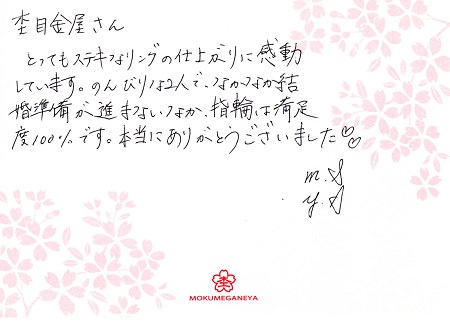 杢目金屋さん
とってもステキなリングの仕上がりに感動
しています。のんびりな2人で、なかなか結
婚準備が進まないなか、指輪は満足
度100%です。本当にありがとうございました♡♡
m.S
y.S
杢
MOKUMEGANEYA